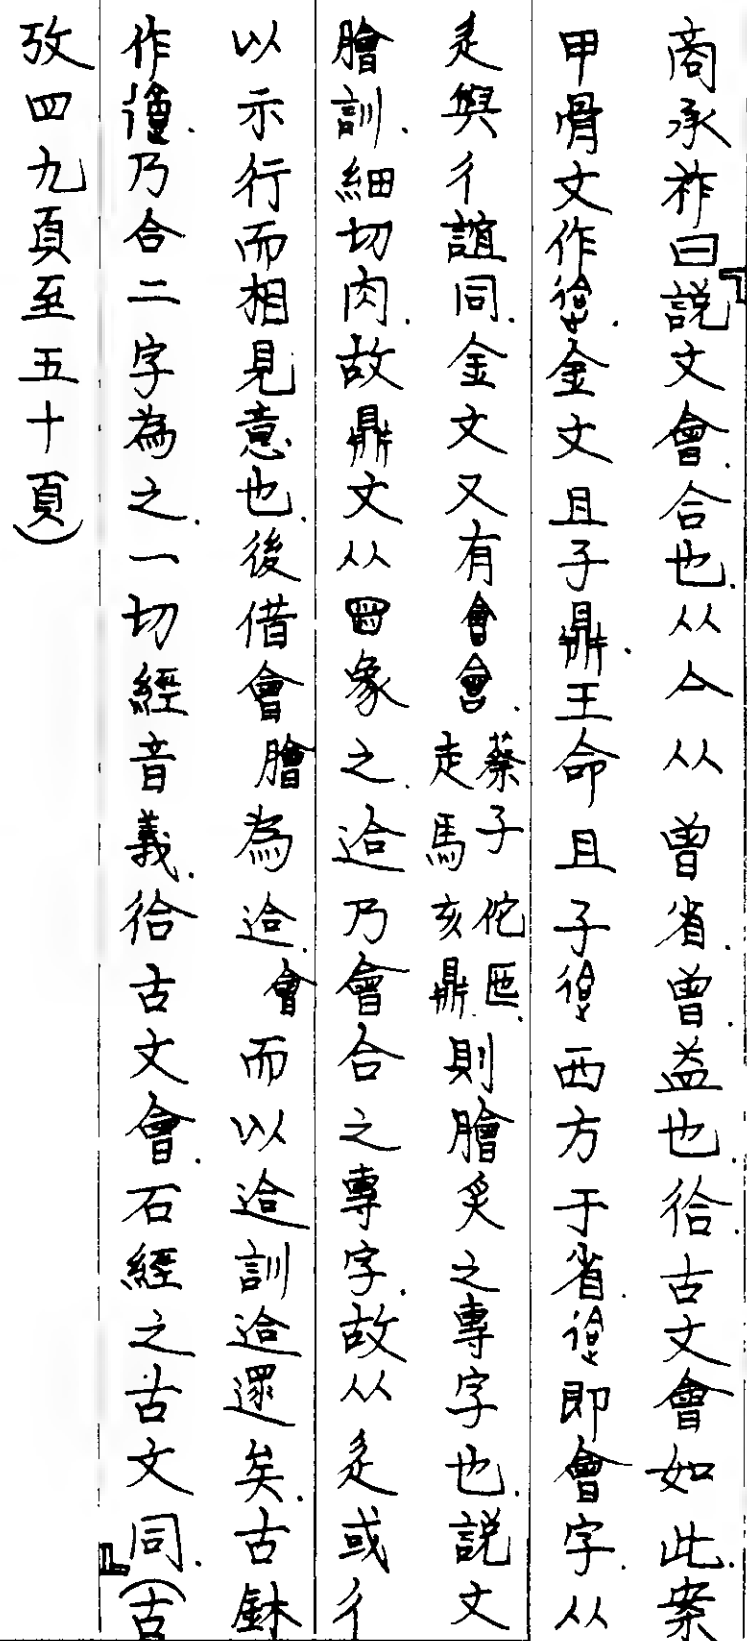 商承祚曰『說文會.合也.从亼从曾省.曾.益也.彶古文會如此.案
甲骨文作𨕥.金文且子鼎.王命且子𨕥西方于省.𨕥即會字.从
辵與彳誼同.金文又有會會.蔡子佗匜.走馬亥鼎.則膾炙之專字也.說文
膾訓.細切肉.故鼎文从囧象之.迨乃會合之專字.故从辵或彳
以示行而相見意也.後借會膾為迨.會而以迨訓迨還矣.古鉥
作𢕔.乃合二字為之.一切經音義.㣛古文會.石經之古文同.』(古
攷四九頁至五十頁)